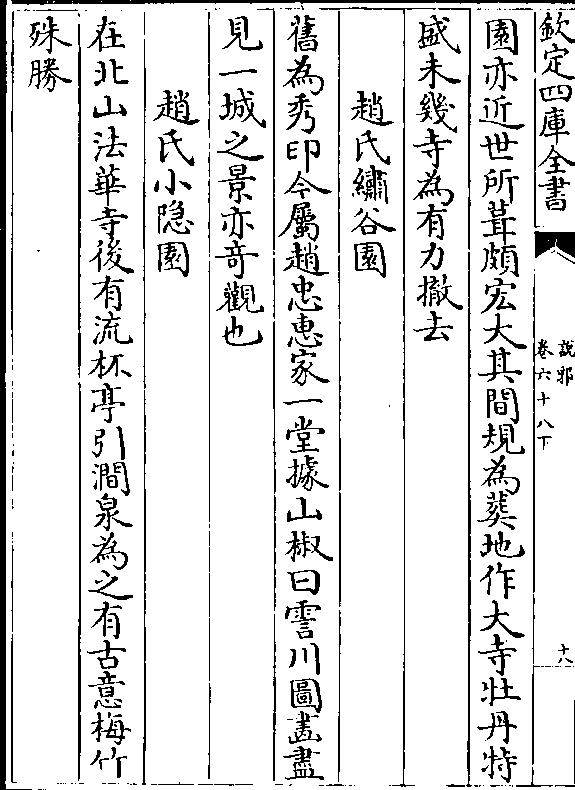 欽定四庫全書
說郛
卷六十八下
十八
園亦近世所葺頗宏大其間規為葬地作大寺牡丹特
盛未幾寺為有力撤去
趙氏繡谷園
舊為秀印今屬趙忠惠家一堂據山椒曰霅川圖畫盡
見一城之景亦奇觀也
趙氏小隱園
在北山法華寺後有流杯亭引澗泉為之有古意梅竹
殊勝